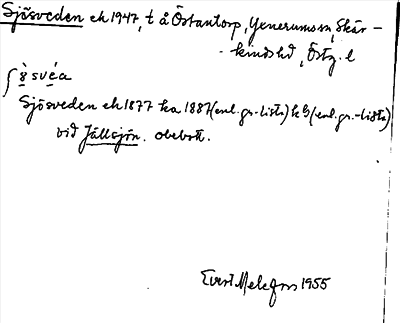 Sjösveden ek 1947, t å Östantorp, Yxnerums sn, Skär-
kinds hd, Östg. l
Sjösveden ek 1877 ka 1887 (enl. gr.-lista) h 9 (enl. gr.-lista)
vid Jällsjön. obebott.
Evert Melefors 1955